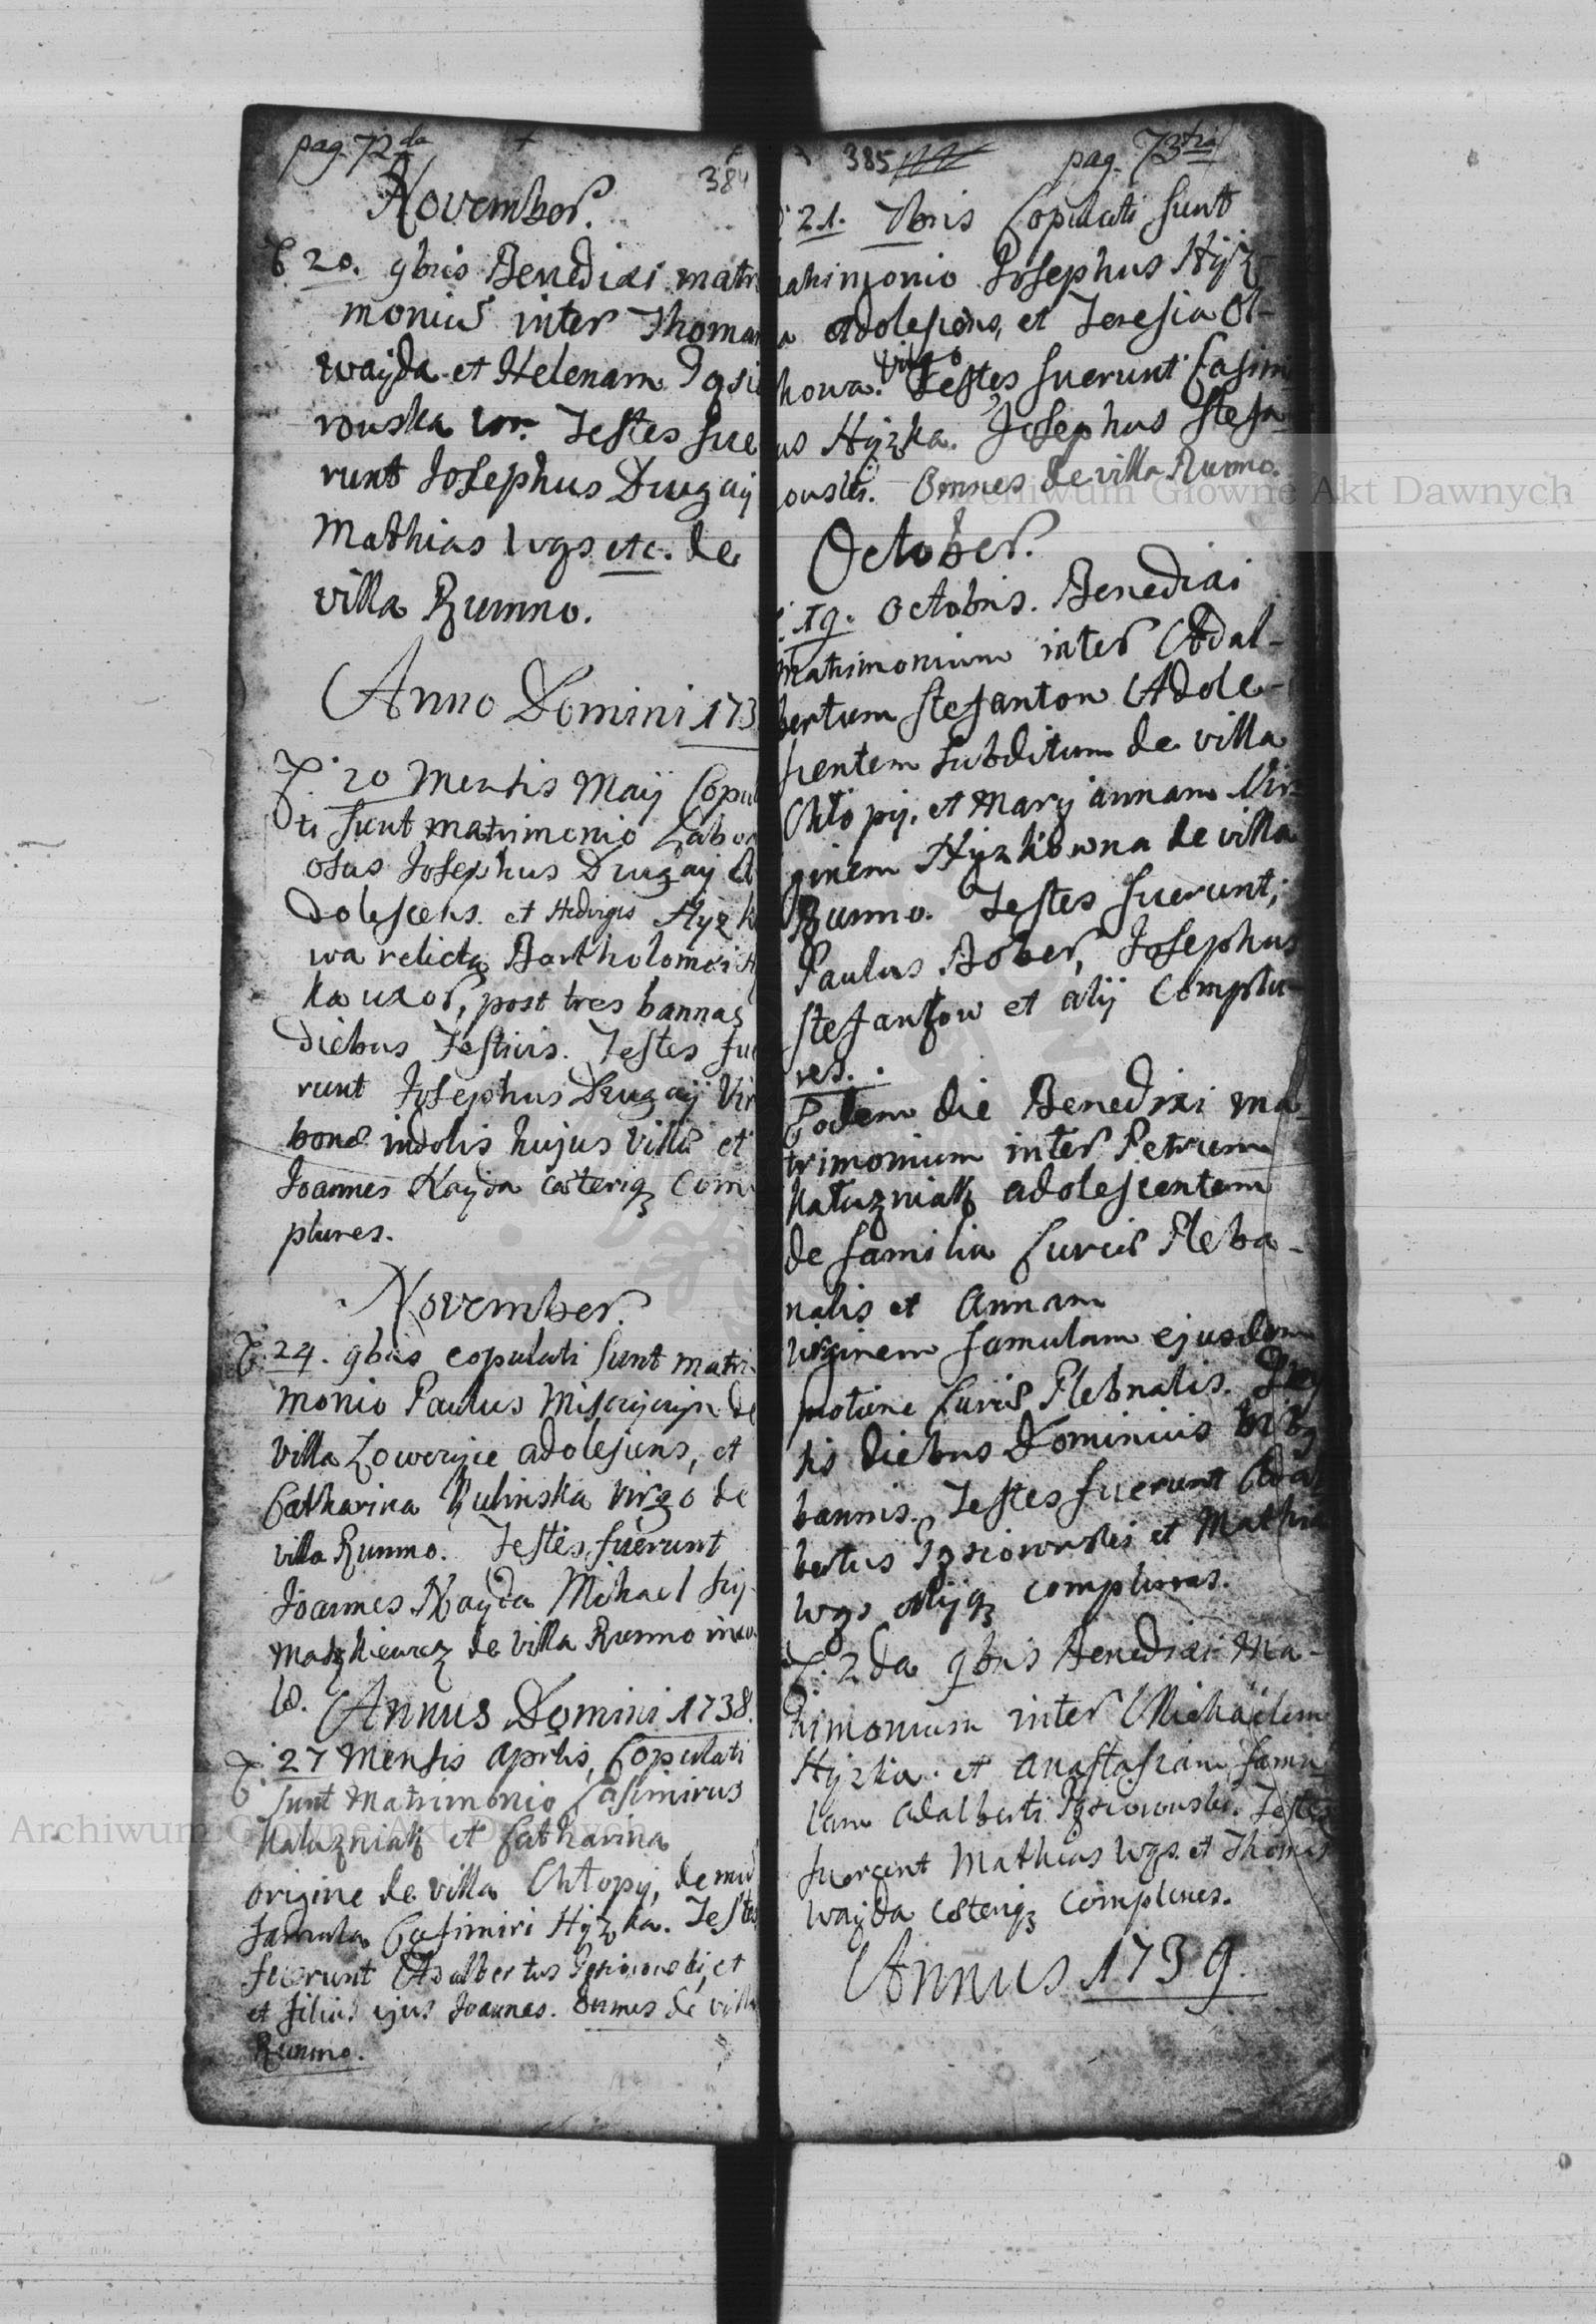 pag. 72da
384
November.
D. 20. 9bris Benedixi matri
moniu inter Thomam
Wayda et Helenam
Testes fue
runt Josephus Drugay
Mathias Wgs etc. de
villa Rumno.
Anno Domini 173
D. 20 Mensis Maij Copu
ti sunt matrimonio Labor
osus Josephus Drugay A
dolescens. et Hedvigis Hyzk
wa relicta Bartholomei
ka uxor, post tres bannas
diebus Festivis. Testes fue
runt Josephus Drugaij Vir
bonæ indolis hujus villæ et
Joannes Wayda cæteriq3 Com
plures.
November.
D. 24. 9bris copulati sunt matri
monio Paulus de
villa adolescens, et
Catharina Kulinska Virgo de
villa Rumno. Testes fuerunt
Joannes Wayda Michael
de villa Rumno inco
læ.
Annus Domini 1738.
D. 27 Mensis Aprilis, Copulati
sunt Matrimonio Casimirus
Kałuzniak et Catharina
origine de villa Chłopy,
famula Casimiri Hyzka. Testes
fuerunt Adalbertus et
et filius ejus Joannes. Omnes de villa
Rumno.
385 pag. 73tia
21. 7bris Copulati sunt
matrimonio Josephus Hyz-
ka Adolescens, et Teresia Ol-
howa. Virgo Testes fuerunt Casimi
us Hyzka. Josephus Stefa
owski. Omnes de villa Rumno.
October.
19. Octobris. Benedixi
matrimonium inter Adal-
bertum Stefantow Adole-
scentem subditum de villa
Chłopy, et Maryannam Vir-
ginem Hyzkowna de villa
Rumno. Testes fuerunt,
Paulus Bober, Josephus
Stefantow et alij Complu-
res.
Eodem die Benedixi ma-
trimonium inter Petrum
Kałuzniak adolescentem
de familia Curiæ Pleba-
nalis et Annam
Virginem famulam ejusdem
Curiæ Plebnalis.
diebus Dominicis
bannis. Testes fuerunt Adal
bertus et Mathias
Wgs alijq3 complures.
D. 2da 9bris Benedixi Ma-
trimonium inter Michaëlem
Hyzka et Anastasiam famu-
lam Adalberti Testes
fuerunt Mathias Wgs. et Thomas
Wayda cæteriq3 complures.
Annus 1739.
Archiwum Główne Akt Dawnych
Archiwum Główne Akt Dawnych